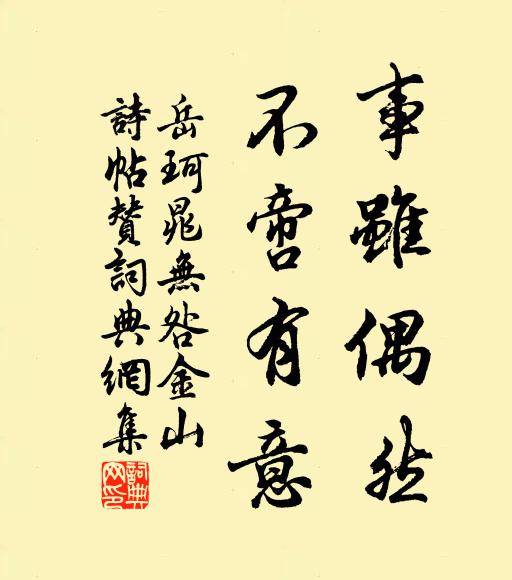 事雖偶然
不啻有意
岳珂晁無咎金山
詩帖贊詞典網集
詞典網印